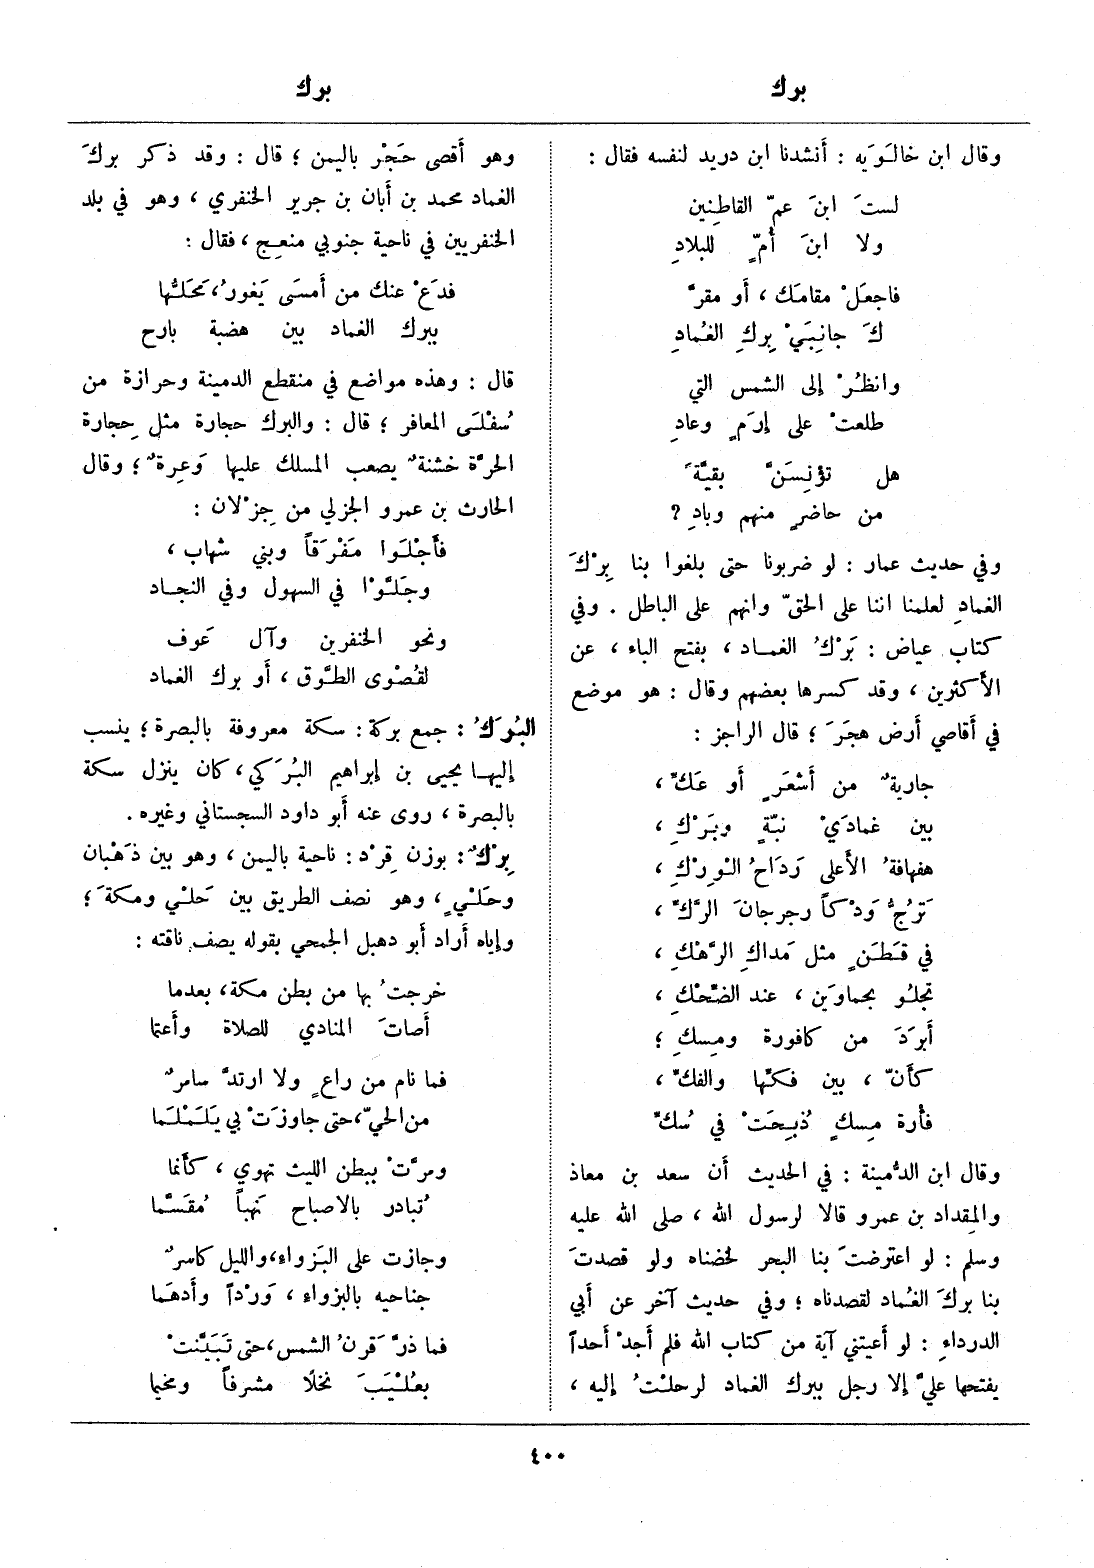 برك
برك
وقال ابن خالَوَيه : أنشدنا ابن دريد لنفسه فقال :
لستَ ابنَ عمّ القاطِنين
ولا ابنَ أُمٍّ للبلادِ
فاجعَلْ مقامَك ، أو مقرَّ
كَ جانِبَيْ بِركِ الغُمادِ
وانظُرْ إلى الشمس التي
طلعتْ على إرَمٍ وعادِ
هل تؤنِسَنَّ بقيَّةَ
من حاضرٍ منهم وبادِ ?
وفي حديث عمار : لو ضربونا حتى بلغوا بنا بِرْكَ
الغمادِ لعلمنا اننا على الحقّ وانهم على الباطل . وفي
كتاب عياض : بَرْكُ الغمـاد ، بفتح الباء ، عن
الأكثرين ، وقد كسرها بعضهم وقال : هو موضع
في أقاصي أرض هجَرَ ؛ قال الراجز :
جاريةٌ من أَشعَرٍ أو عَكِّ ،
بين غمادَيْ نبَّةٍ وبَرْكِ ،
هفهافةُ الأعلى رَدَاحُ الْوِرْكِ ،
تَرُجُّ وَدْكاً رجرجانَ الرَّكِّ ،
في قَطَنٍ مثل مَداكِ الرَّهْكِ ،
تجلُو بجماوَين ، عند الضِّحْكِ ،
أبرَدَ من كافورة ومِسكِ ؛
كأنّ ، بين فكِّها والفكِّ ،
فأرة مِسكٍ ذُبِحَتْ في سُكِّ
وقال ابن الدُّمينة : في الحديث أن سعد بن معاذ
والمِقداد بن عمرو قالا لرسول الله ، صلى الله عليه
وسلم : لو اعترضتَ بنا البحر لخضناه ولو قصدتَ
بنا بركَ الغُماد لقصدناه ؛ وفي حديث آخر عن أبي
الدرداءِ : لو أعيتني آية من كتاب الله فلم أجدْ أحداً
يفتحها عليَّ إلا رجل ببرك الغماد لرحلْتُ إليه ،
وهو أقصى حَجْر باليمن ؛ قال : وقد ذكر بركَ
الغماد محمد بن أبان بن جرير الخنفري ، وهو في بلد
الخنفريين في ناحية جنوبي منعـِج ، فقال :
فدَعْ عنك من أمسَى يَغورُ، مَحَلُّها
ببرك الغماد بين هضبة بارح
قال : وهذه مواضع في منقطع الدمينة وحرازة من
سُفْلَى المعافر ؛ قال : والبرك حجارة مثل حِجارة
الحرَّة خشنةٌ يصعب المسلك عليها وَعِرةٌ ؛ وقال
الحارث بن عمرو الجزلي من جِزْلان :
فأَجْلَوا مَفْرَقاً وبني شهاب ،
وجَلَّوْا في السهول وفي النجـاد
ونحو الخنفرين وآل عَوف
لقُصْوى الطَّوق ، أو برك الغماد
البُرَكُ : جمع بركة : سكة معروفة بالبصرة ؛ ينسب
إليهـا يحيى بن إبراهيم البُرَكي، كان ينزل سكة
بالبصرة ، روى عنه أبو داود السجستاني وغيره .
بِرْكٌ : بوزن قِرْد : ناحية باليمن ، وهو بين ذَهْبان
وحَلْيٍ ، وهو نصف الطريق بين حَلْي ومكةَ ؛
وإياه أراد أبو دهبل الجمحي بقوله يصف ناقته :
خرجتُ بها من بطن مكة، بعدما
أصاتَ المنادي للصلاة وأَعتا
فما نام من راعٍ ولا ارتدَّ سامرٌ
من الحيّ، حتى جاوزَتْ بي يَلَمْلَما
ومرَّتْ ببطن الليث تهوي ، كأنما
تُبادر بالاصباح نَهباً مُقَسَّما
وجازت على البَزواء، والليل كاسرٌ
جناحيه بالبزواء ، وَرْداً وأَدهَما
فما ذرَّ قَرنُ الشمس، حتى تَبَيَّنتْ
بعُلْيَبَ نخلًا مشرفاً ومخيا
٤٠٠